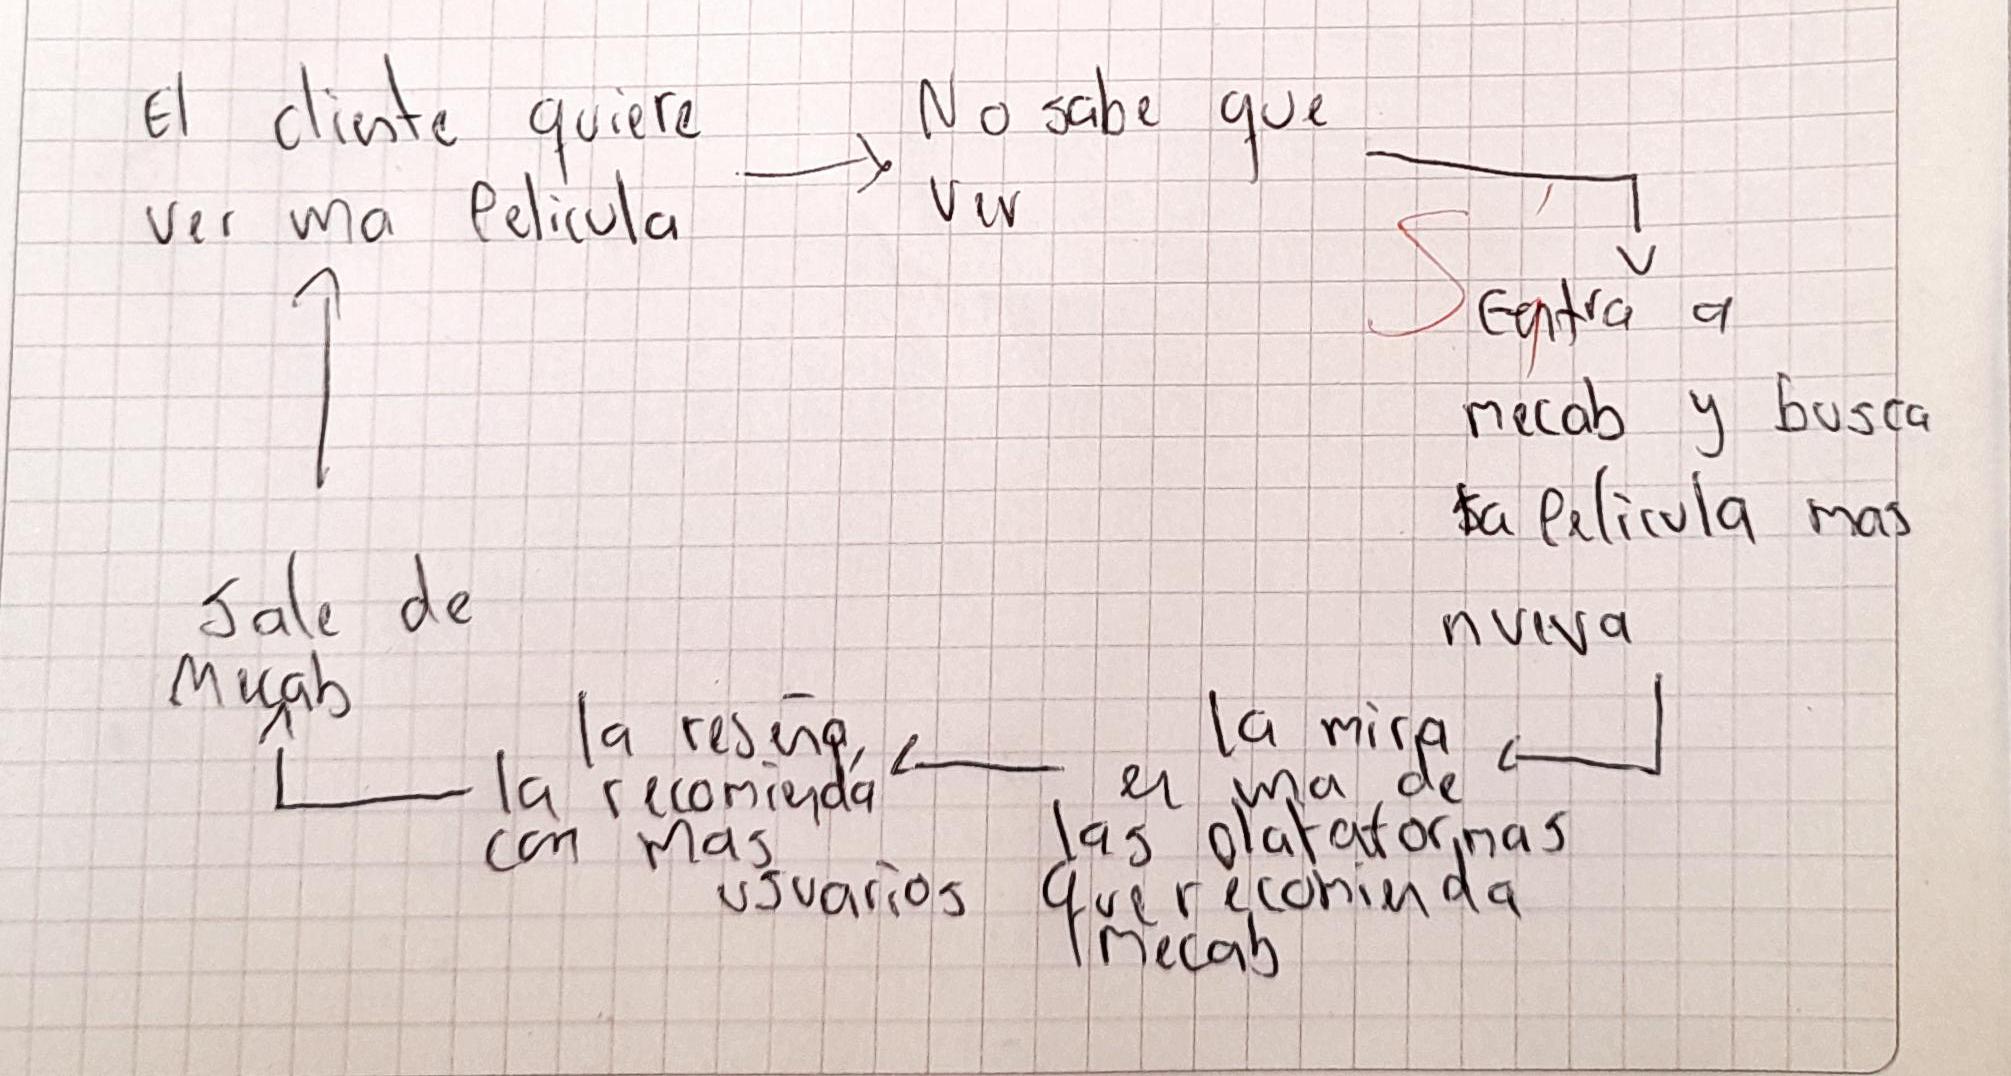 El cliente quiere
ver una Pelicula
No sabe que
ver
Entra a
mecab y busca
la Pelicula mas
nueva
la mira
en una de
las plataformas
que recomienda
Mecab
la reseña,
la recomienda
con mas
usuarios
Sale de
Mecab